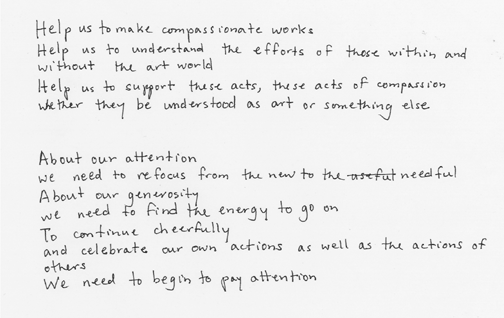 Help us to make compassionate works
Help us to understand the efforts of those within and
without the art world
Help us to support these acts, these acts of compassion
whether they be understood as art or something else
About our attention
we need to refocus from the new to the useful needful
About our generosity
we need to find the energy to go on
To continue cheerfully
and celebrate our own actions as well as the actions of
others
We need to begin to pay attention